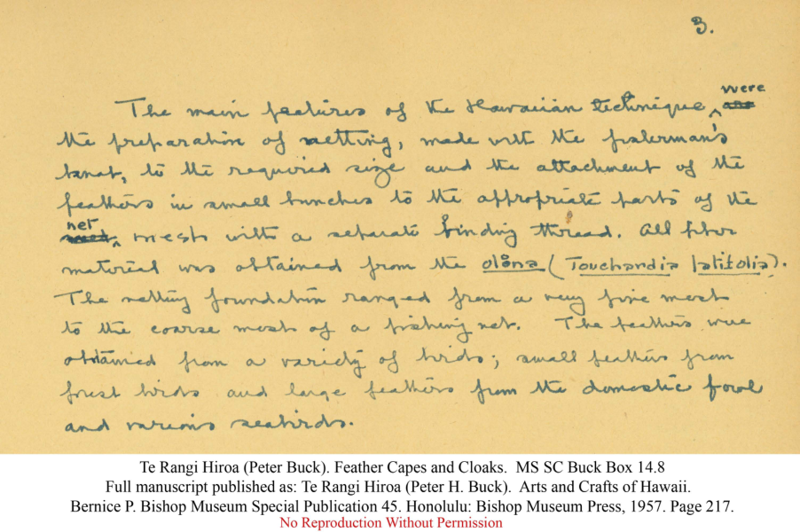 3.
The main features of the Hawaiian technique, were are
the preparation of netting, made with the fisherman's
knot, to the required size and the attachment of the
feathers in small bunches to the appropriate parts of the
net mesh with a separate binding thread. All fiber
material was obtained from the olona (Touchardia latifolia).
The netting foundation ranged from a very fine mesh
to the coarse mesh of a fishing net. The feathers were
obtained from a variety of birds; small feathers from
forest birds and large feathers from the domestic fowl
and various seabirds.
Te Rangi Hiroa (Peter Buck). Feather Capes and Cloaks. MS SC Buck Box 14.8
Full manuscript published as: Te Rangi Hiroa (Peter H. Buck). Arts and Crafts of Hawaii.
Bernice P. Bishop Museum Special Publication 45. Honolulu: Bishop Museum Press, 1957. Page 217.
No Reproduction Without Permission